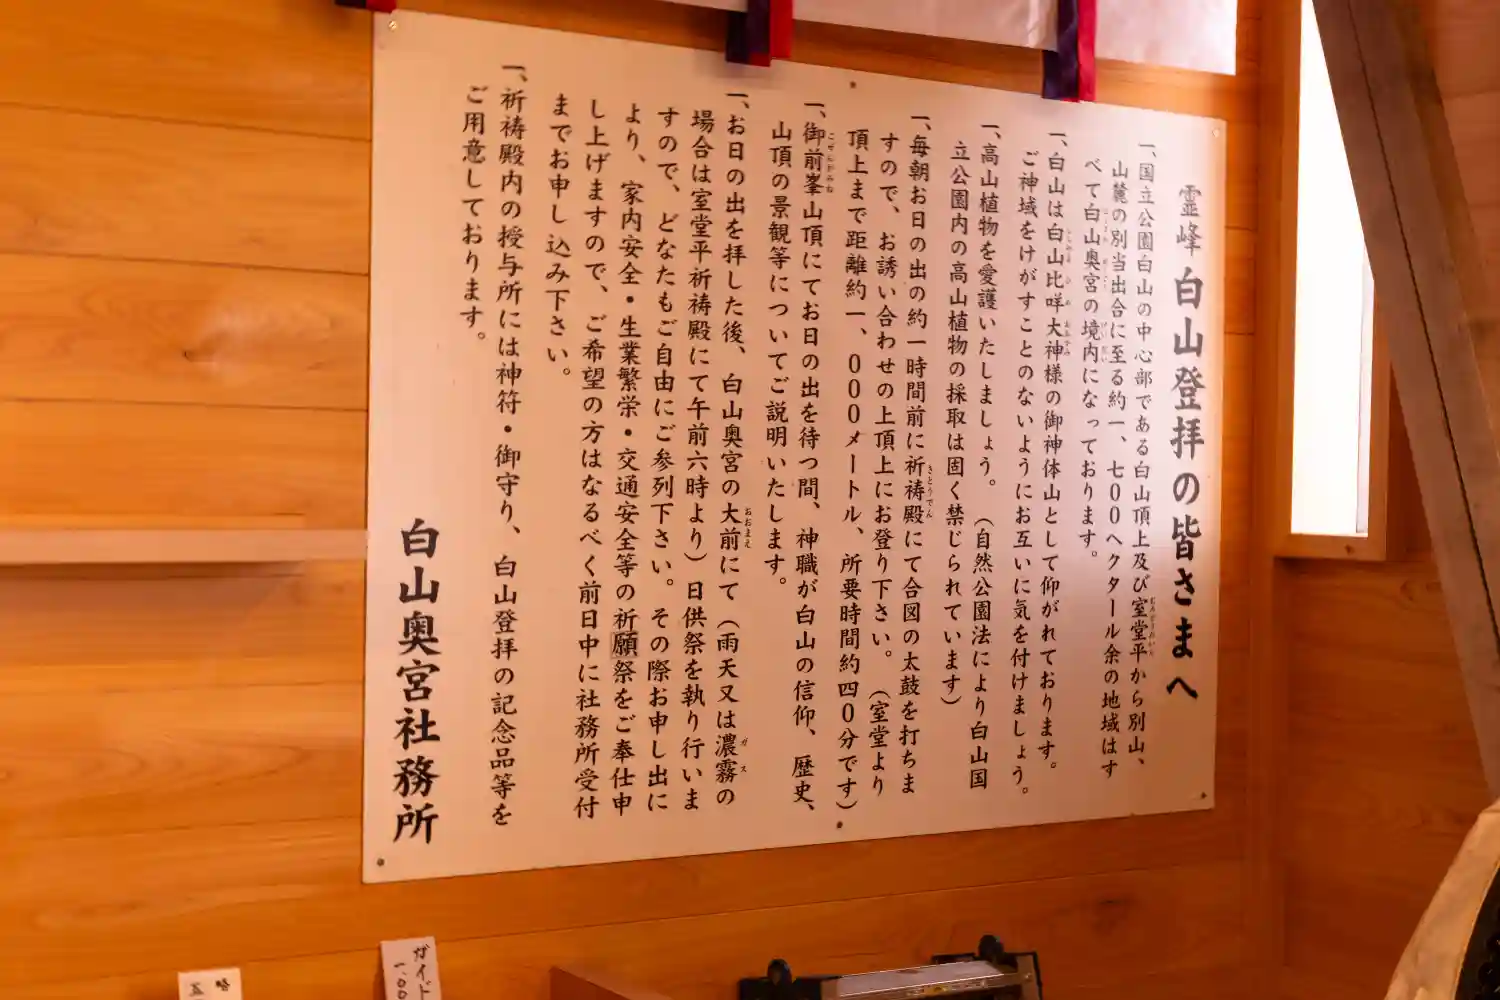 霊峰 白山登拝の皆さまへ
一、国立公園白山の中心部である白山頂上及び室堂平から別山、
山麓の別当出合に至る約一、七00ヘクタール余の地域はす
べて白山奥宮の境内になっております。
一、白山は白山比咩大神様の御神体山として仰がれております。
ご神域をけがすことのないようにお互いに気を付けましょう。
一、高山植物を愛護いたしましょう。（自然公園法により白山国
立公園内の高山植物の採取は固く禁じられています）
一、毎朝お日の出の約一時間前に祈祷殿にて合図の太鼓を打ちま
きとうでん
すので、お誘い合わせの上頂上にお登り下さい。（室堂より
頂上まで距離約一、000メートル、所要時間約四0分です）
一、御前峯山頂にてお日の出を待つ間、神職が白山の信仰、歴史、
山頂の景観等についてご説明いたします。
一、お日の出を拝した後、白山奥宮の大前にて（雨天又は濃霧の
おおまえ
ガス
場合は室堂平祈祷殿にて午前六時より）日供祭を執り行いま
すので、どなたもご自由にご参列下さい。その際お申し出に
より、家内安全・生業繁栄・交通安全等の祈願祭をご奉仕申
し上げますので、ご希望の方はなるべく前日中に社務所受付
までお申し込み下さい。
一、祈祷殿内の授与所には神符・御守り、白山登拝の記念品等を
ご用意しております。
白山奥宮社務所
ガイド